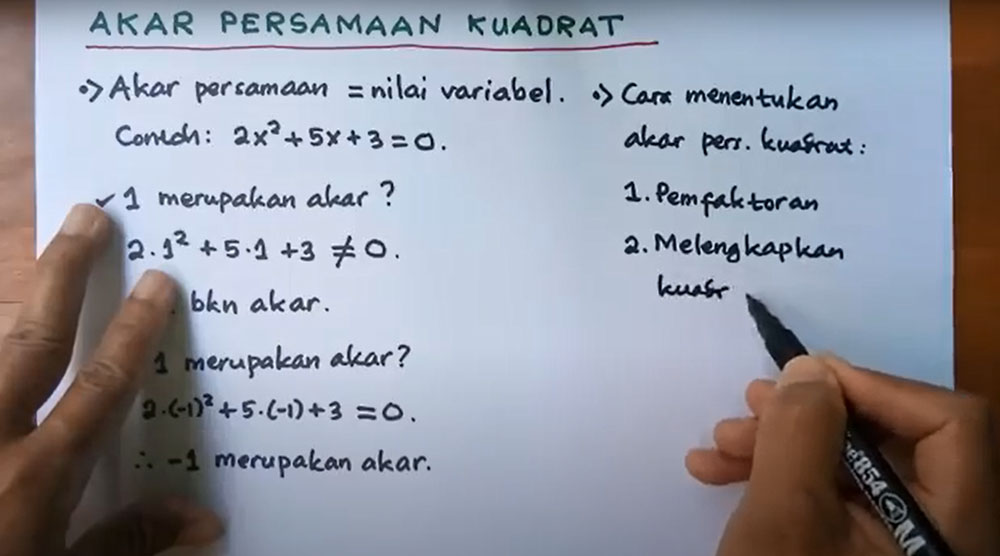 AKAR PERSAMAAN KUADRAT
•> Akar persamaan = nilai variabel.
Contoh: 2x² + 5x + 3 = 0.
✓ 1 merupakan akar?
2·1² + 5·1 + 3 ≠ 0.
bkn akar.
1 merupakan akar?
2·(-1)² + 5·(-1) + 3 = 0.
∴ -1 merupakan akar.
•> Cara menentukan
akar pers. kuadrat:
1. Pemfaktoran
2. Melengkapkan
kuadr
854 M